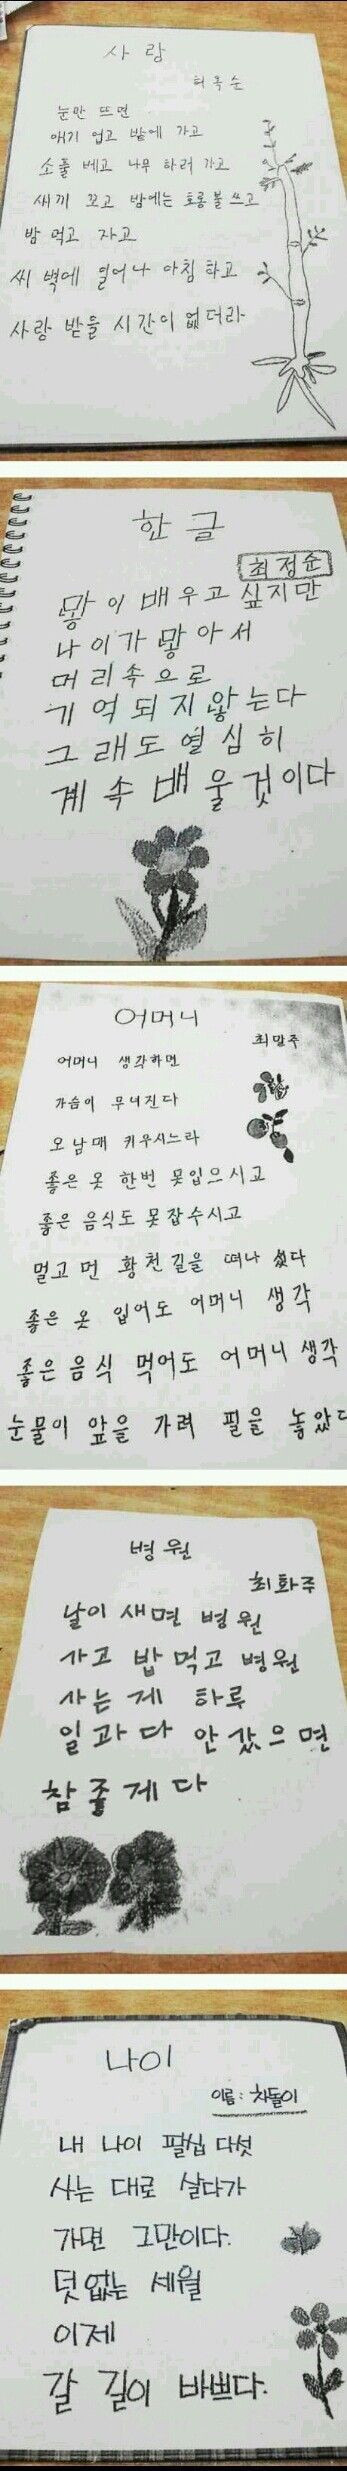 사랑
허옥순
눈만 뜨면
애기 업고 밭에 가고
소풀 베고 나무 하러 가고
새끼 꼬고 밤에는 호롱불 쓰고
밤 먹고 자고
씨벽에 일어나 아침 하고
사랑 받을 시간이 없더라
한글
최정순
많이 배우고 싶지만
나이가 많아서
머리속으로
기억되지않는다
그래도 열심히
계속 배울것이다
어머니
최말주
어머니 생각하면
가슴이 무너진다
오남매 키우시느라
좋은 옷 한번 못입으시고
좋은 음식도 못잡수시고
멀고 먼 황천길을 떠나 셨다
좋은 옷 입어도 어머니 생각
좋은 음식 먹어도 어머니 생각
눈물이 앞을 가려 필을 놓았다
병원
최화주
날이 새면 병원
가고 밥먹고 병원
사는게 하루
일과다 안갔으면
참좋게다
나이
이름: 차돌이
내 나이 팔십 다섯
사는 대로 살다가
가면 그만이다.
덧없는 세월
이제
갈 길이 바쁘다.